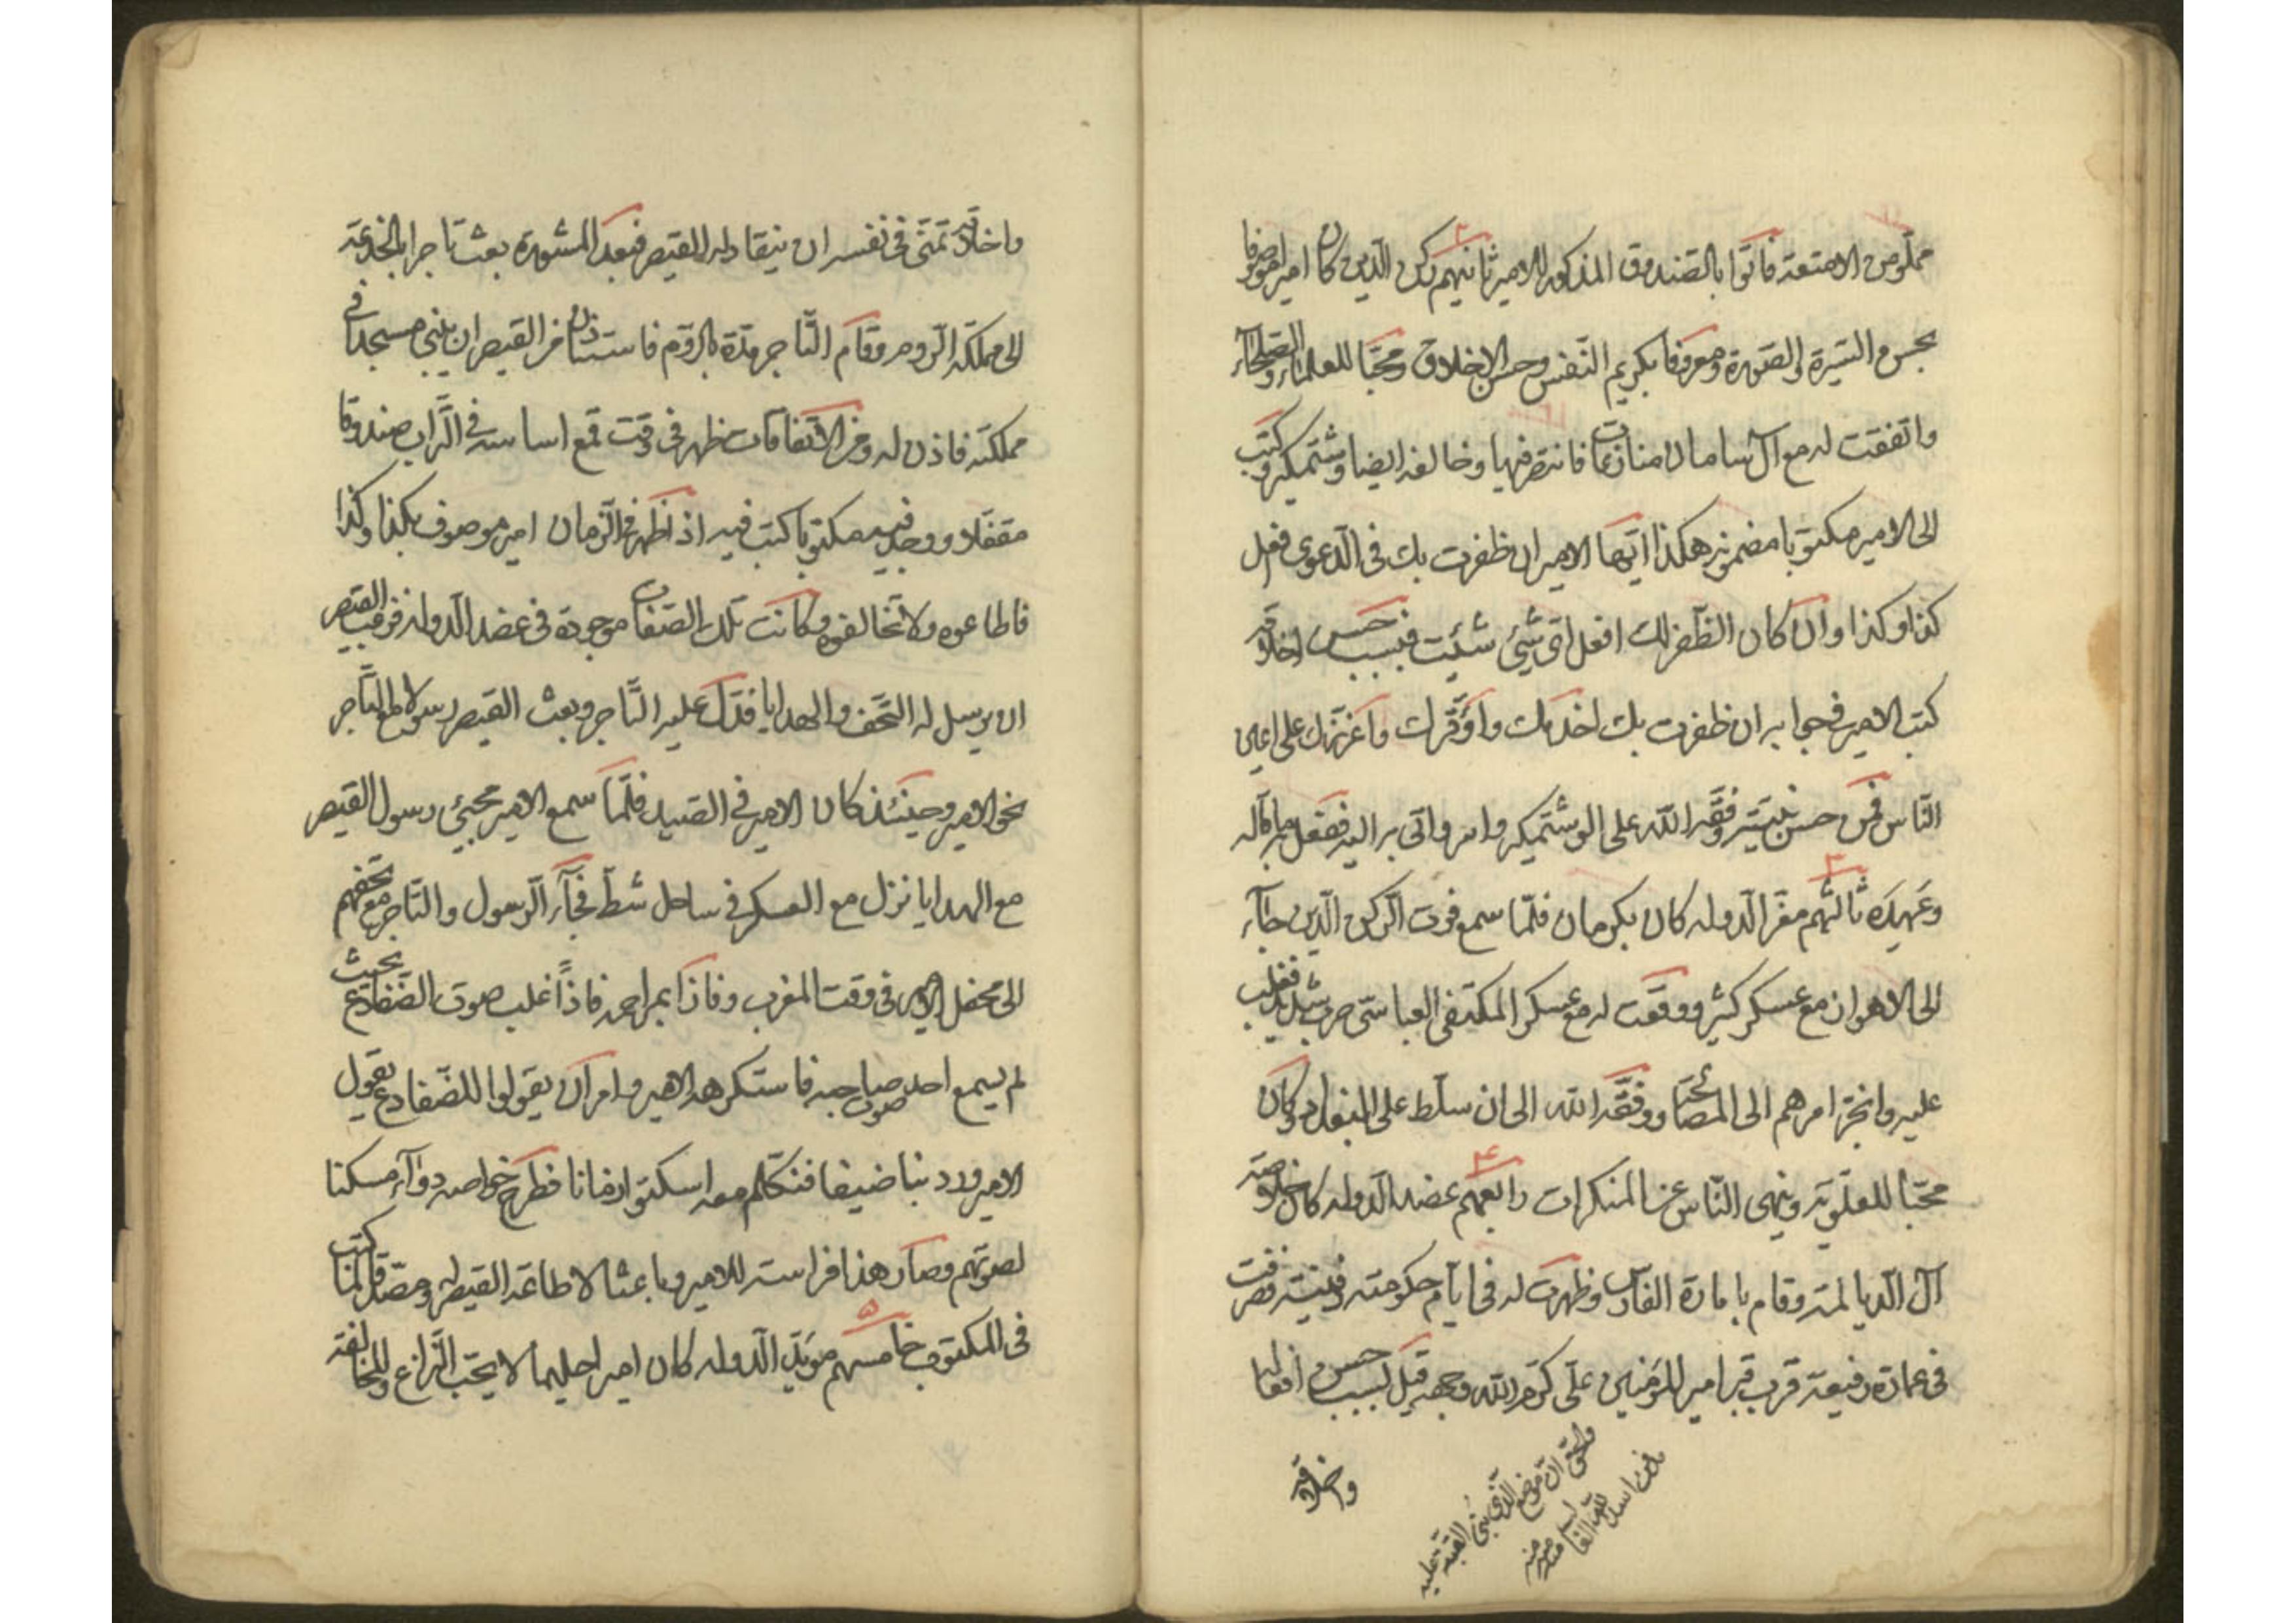 مملو من الامتعة فاتوا بالصندوق المذكور للامير ثانيهم ركن الدين كان اميرا موصوفا
بحسن السيرة والصورة ومعروفا بكريم النفس وحسن الاخلاق ومحبّا للعلماء والصلحآء
واتفقت له مع آل سامان منازعات فانتصر فيها وخالفه ايضا وشتمكير وكتب
الى الامير مكتوبا مضمونه هكذا ايّها الامير ان ظفرت بك فى الدعوى فعل
كذا وكذا وان كان الظّفر لك افعل اىّ شئ شئت فبسبب حسن اخلاقه
كتب الامير فى جوابه ان ظفرت بك اخدمك واوقّرك واعززك على اعين
النّاس فمن حسن نيّته وفّقه الله على الوشتمكير واسر واتى به اليه ففعل به ما قاله
وعهده ثالثهم معزّ الدوله كان بكرمان فلمّا سمع فوت الركن الدين جآء
الى الاهواز مع عسكر كثير ووقعت له مع عسكر المكتفى العباسىّ حرب شديد فغلب
عليه وانجرّ امرهم الى المصالحة ووفّقه الله الى ان سلّط على البغداد وكان
محبّا للعلويّة وينهى النّاس عن المنكرات رابعهم عضد الدوله كان خلاصة
آل الديالمة وقام بامارة الفارس وظهرت له فى ايّام حكومته دفينة فصرفت
فى عمارة رفيعة قرب قبر امير المؤمنين علىّ كرّم الله وجهه قيل بسبب حسن افعاله
والحق انّ موضع الّذى بنى القبّة عليه
واخلاقه
واخلاقه تمنّى فى نفسه ان ينقاد له القيصر فبعد المشورة بعث تاجرا بالخدعة
الى مملكة الرّوم وقام التّاجر مدّة بالرّوم فاستأذن من القيصر ان يبنى مسجدا فى
مملكته فاذن له ومن الاتّفاقات ظهر فى وقت قمع اساسه فى التّراب صندوقا
مقفّلا ووجد فيه مكتوبا كتب فيه اذا ظهر فى الزّمان امير موصوف بكذا وكذا
فاطاعوه ولا تخالفوه وكانت تلك الصّفات موجودة فى عضد الدوله فرغب القيصر
ان يرسل له التّحف والهدايا فدلّ عليه التّاجر وبعث القيصر رسولا مع التّاجر
نحو الامير وحينئذ كان الامير فى الصّيد فلمّا سمع الامير مجيئ رسول القيصر
مع الهدايا نزل مع العسكر فى ساحل شطّ فجآء الرّسول والتّاجر مع تحفهم
الى محفل الامير فى وقت المغرب وفازا بمراحمه فاذا غلب صوت الضّفادع بحيث
لم يسمع احد صوت صاحبه فاستكره الامير وامر ان يقولوا للضّفادع يقول
الامير ورد بنا ضيفا فنتكلّم معه اسكتوا زمانا فطرح خواصه دوآء مسكتا
لصوتهم وصار هذا فراسته للامير وباعثا لاطاعة القيصر له ومصدّقا لما كتب
فى المكتوب خامسهم مويّد الدوله كان اميرا حليما لا يحبّ النّزاع والمخالفة